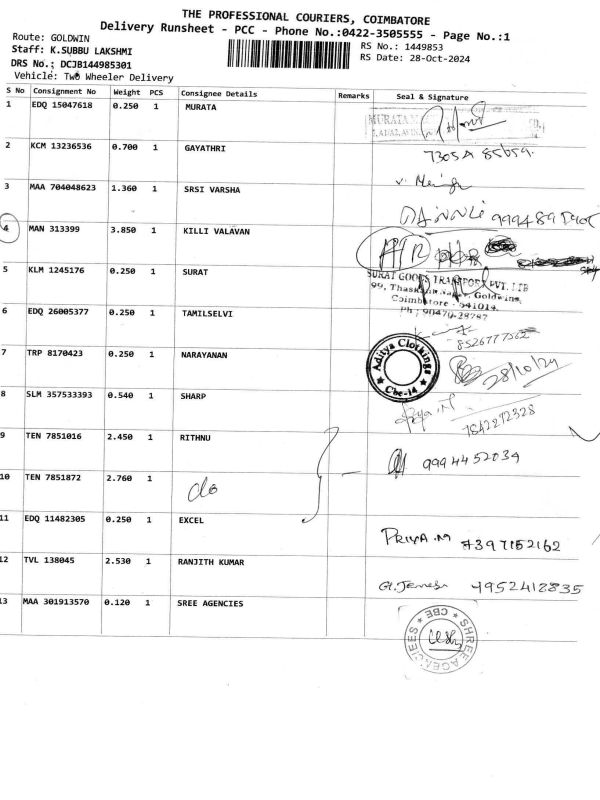 THE PROFESSIONAL COURIERS, COIMBATORE
Delivery Runsheet - PCC - Phone No.:0422-3505555 - Page No.:1
Route: GOLDWIN
RS No.: 1449853
Staff: K.SUBBU LAKSHMI
RS Date: 28-Oct-2024
DRS No.: DCJB144985301
Vehicle: Two Wheeler Delivery
S No Consignment No Weight PCS Consignee Details Remarks Seal & Signature
1 EDQ 15047618 0.250 1 MURATA
MURATA
2 KCM 13236536 0.700 1 GAYATHRI
7305A 85659.
3 MAA 704048623 1.360 1 SRSI VARSHA
4 MAN 313399 3.850 1 KILLI VALAVAN
5 KLM 1245176 0.250 1 SURAT
SURAT GOODS TRANSPORT PVT. LTD
99, Nagar, Goldwins,
Coimbatore - 641014.
6 EDQ 26005377 0.250 1 TAMILSELVI
8526777562
7 TRP 8170423 0.250 1 NARAYANAN
Aditya Clothings
Cbe-14
28/10/24
8 SLM 357533393 0.540 1 SHARP
7842272328
9 TEN 7851016 2.450 1 RITHNU
9994452039
10 TEN 7851872 2.760 1 do
11 EDQ 11482305 0.250 1 EXCEL
PRIYA.M 7397152162
12 TVL 138045 2.530 1 RANJITH KUMAR
9952412835
13 MAA 301913570 0.120 1 SREE AGENCIES
SHREE AGENCIEES * CBE *